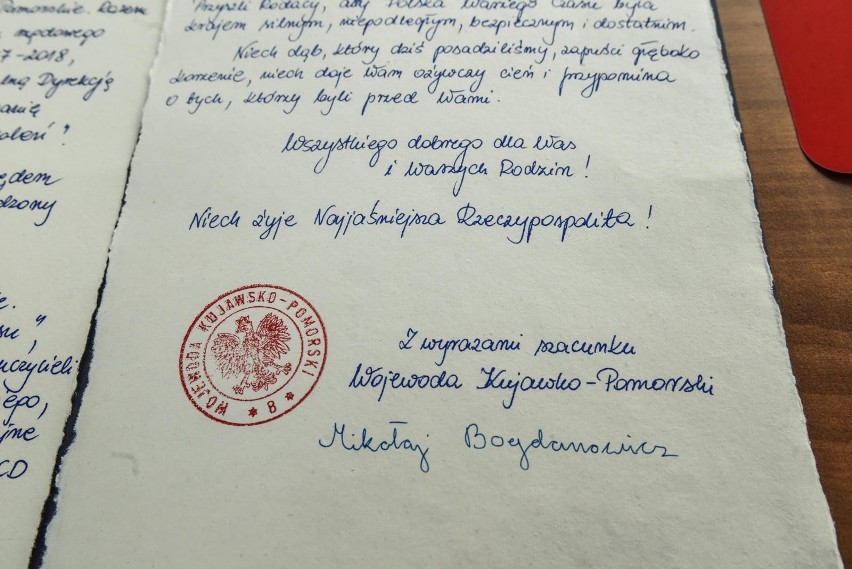 Pomorskie. Razem
2017-2018,
Dyrekcją
ędem
dzony
e.
czycieli
ego,
jne
CD
Przyszli Rodacy, aby Polska Waszego czasu była
krajem silnym, niepodległym, bezpiecznym i dostatnim.
Niech dąb, który dziś posadziliśmy, zapuści głęboko
korzenie, niech daje Wam ożywczy cień i przypomina
o tych, którzy byli przed Wami.
Wszystkiego dobrego dla Was
i Waszych Rodzin!
Niech żyje Najjaśniejsza Rzeczypospolita!
WOJEWODA KUJAWSKO-POMORSKI
* 8 *
Z wyrazami szacunku
Wojewoda Kujawko-Pomorski
Mikołaj Bogdanowicz